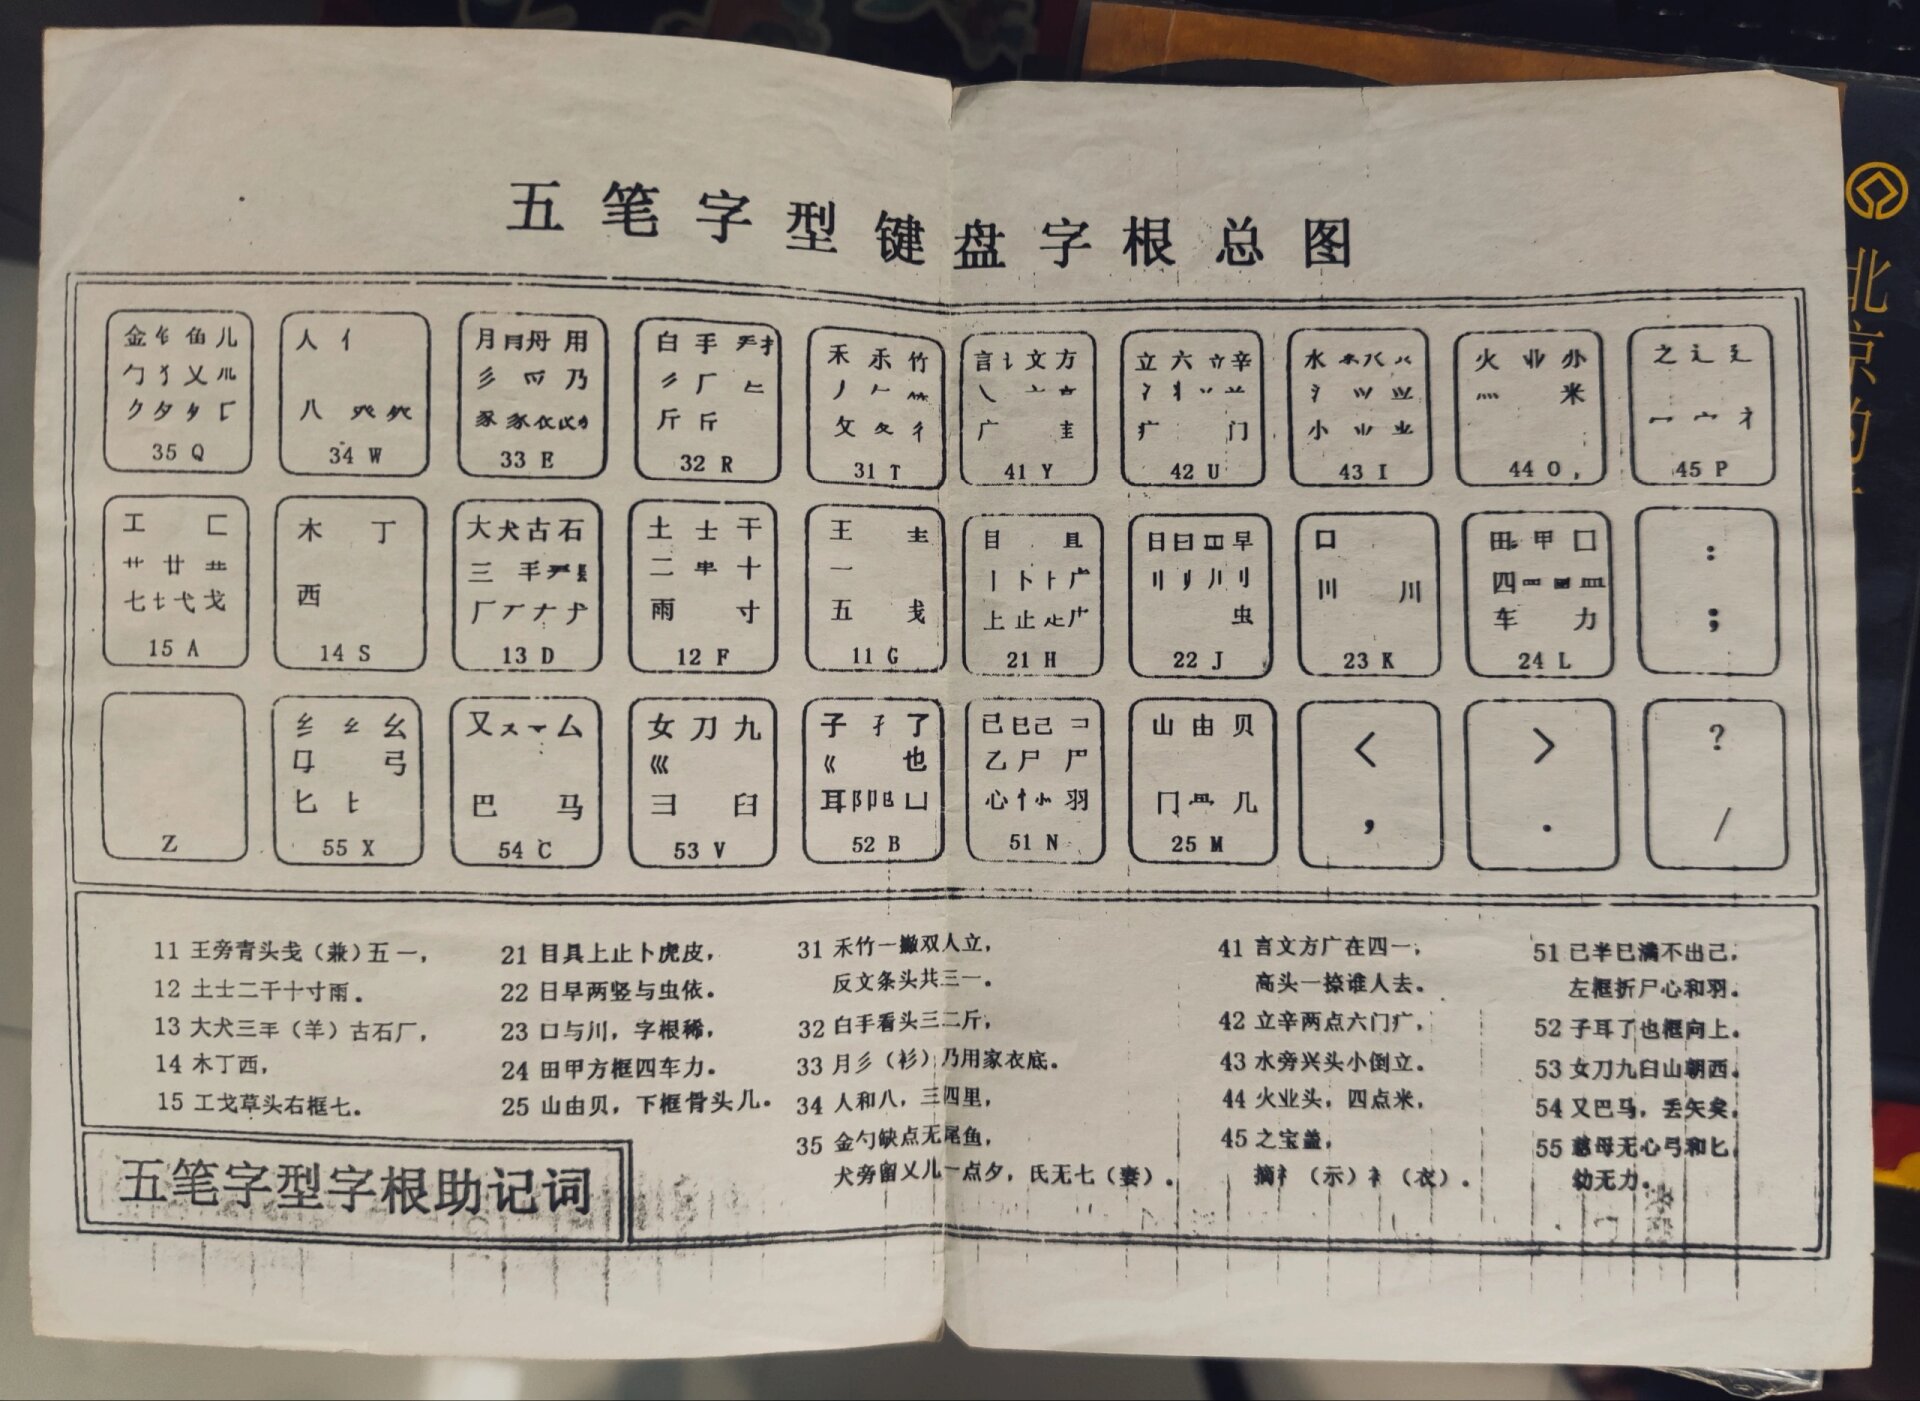 五笔字型键盘字根总图
金 钅 鱼 儿
勹 犭 乂
夕
35 Q
人 亻
八 癶
34 W
月 丹 用
彡 爫 乃
豕
33 E
白 手 扌
厂
斤
32 R
禾 竹
丿
攵 夂 彳
31 T
言 讠 文 方
丶 亠
广
41 Y
立 六 辛
冫 丬
疒 门
42 U
水
氵
小
43 I
火 业
灬 米
44 O ,
之 辶 廴
冖 宀 礻
45 P
工 匚
艹 廿
七 弋 戈
15 A
木 丁
西
14 S
大 犬 古 石
三
厂
13 D
土 士 干
二 十
雨 寸
12 F
王 龶
一
五 戋
11 G
目 且
丨 卜
上 止
21 H
日 曰 早
刂
虫
22 J
口
川
23 K
田 甲 囗
四 皿
车 力
24 L
:
;
Z
纟 幺
弓
匕
55 X
又 厶
巴 马
54 C
女 刀 九
巛
彐 臼
53 V
子 孑 了
巜 也
耳 阝 卩 凵
52 B
已 巳 己 コ
乙 尸
心 忄 羽
51 N
山 由 贝
冂 几
25 M
<
,
>
.
?
/
11 王旁青头戋（兼）五一，
12 土士二干十寸雨。
13 大犬三𦍌（羊）古石厂，
14 木丁西，
15 工戈草头右框七。
21 目具上止卜虎皮，
22 日早两竖与虫依。
23 口与川，字根稀，
24 田甲方框四车力。
25 山由贝，下框骨头几。
31 禾竹一撇双人立，
反文条头共三一。
32 白手看头三二斤，
33 月彡（衫）乃用家衣底。
34 人和八，三四里，
35 金勺缺点无尾鱼，
犬旁留乂儿一点夕，氏无七（妻）。
41 言文方广在四一，
高头一捺谁人去。
42 立辛两点六门疒，
43 水旁兴头小倒立。
44 火业头，四点米，
45 之宝盖，
摘礻（示）衤（衣）。
51 已半巳满不出己，
左框折尸心和羽。
52 子耳了也框向上。
53 女刀九臼山朝西。
54 又巴马，丢矢矣，
55 慈母无心弓和匕，
幼无力。
五笔字型字根助记词
北京的